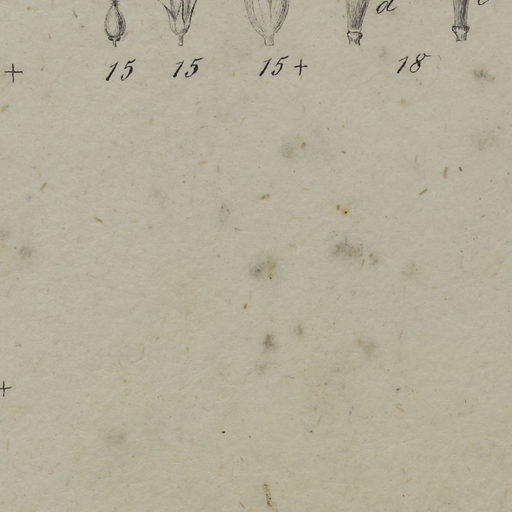 d
+ 15 15 15+ 18
+